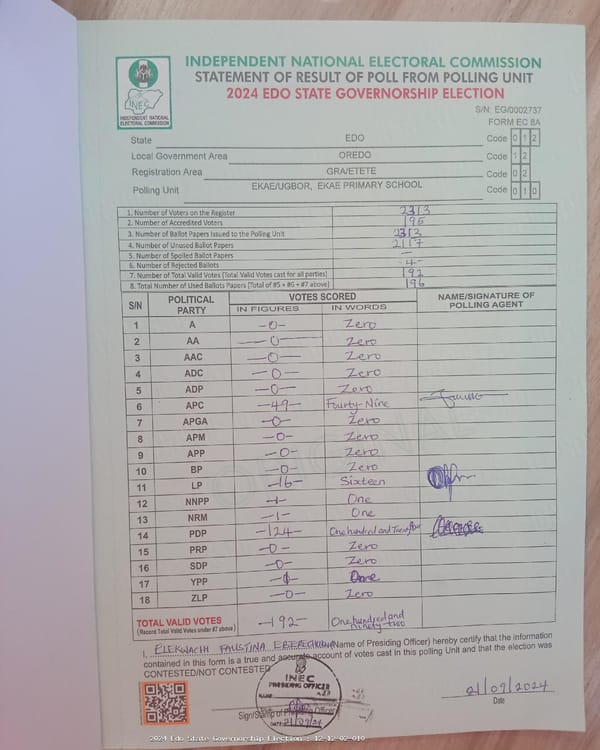 INDEPENDENT NATIONAL ELECTORAL COMMISSION
STATEMENT OF RESULT OF POLL FROM POLLING UNIT
2024 EDO STATE GOVERNORSHIP ELECTION
S/N: EG/0002737
FORM EC 8A
INEC
INDEPENDENT NATIONAL
ELECTORAL COMMISSION
State EDO Code 0 1 2
Local Government Area OREDO Code 1 2
Registration Area GRA/ETETE Code 0 2
Polling Unit EKAE/UGBOR, EKAE PRIMARY SCHOOL Code 0 1 0
1. Number of Voters on the Register 2313
2. Number of Accredited Voters
3. Number of Ballot Papers Issued to the Polling Unit 2313
4. Number of Unused Ballot Papers 2117
5. Number of Spoiled Ballot Papers —
6. Number of Rejected Ballots -4-
7. Number of Total Valid Votes (Total Valid Votes cast for all parties) 192
8. Total Number of Used Ballots Papers (Total of #5 + #6 + #7 above) 196
S/N POLITICAL PARTY VOTES SCORED NAME/SIGNATURE OF POLLING AGENT
IN FIGURES IN WORDS
1 A -0- Zero
2 AA -0- Zero
3 AAC -0- Zero
4 ADC -0- Zero
5 ADP -0- Zero
6 APC -49- Fourty-Nine
7 APGA -0- Zero
8 APM -0- Zero
9 APP -0- Zero
10 BP -0- Zero
11 LP -16- Sixteen
12 NNPP -1- One
13 NRM -1- One
14 PDP -124- One hundred and
15 PRP -0- Zero
16 SDP -0- Zero
17 YPP One
18 ZLP -0- Zero
TOTAL VALID VOTES -192- One hundred and ninety-two
(Record Total Valid Votes under #7 above)
I, ELEKWACHI FAUSTINA (Name of Presiding Officer) hereby certify that the information
contained in this form is a true and accurate account of votes cast in this polling Unit and that the election was
CONTESTED/NOT CONTESTED
INEC
PRESIDING OFFICER
NAME
Sign/Stamp of Presiding Officer
DATE 21/09/24
21/09/2024
Date
2024 Edo State Governorship Election : 12-12-02-010